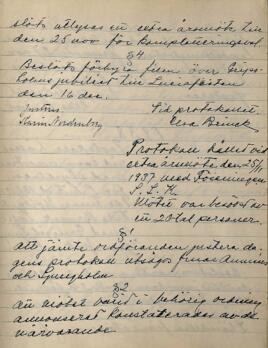 slöts utlysas en extra årsmöte till
den 25 nov för kompletteringsval.
§ 4
Beslöts förhyra film över Grips-
holmsjubiléet till Luciafesten
den 16 dec.
Justeras Vid protokollet
Karin Nordenberg Elsa Brinck
Protokoll hållet vid
extra årsmöte den 25/11
1937 med Föreningen
S. L. K.
Mötet var besökt av
en 20 tal personer.
§ 1
Att jämte ordföranden justera da-
gens protokoll utsågs fruar
och Ljungholm
§ 2
Att mötet varit i behörig ordning
annonserat konstaterades av de
närvarande